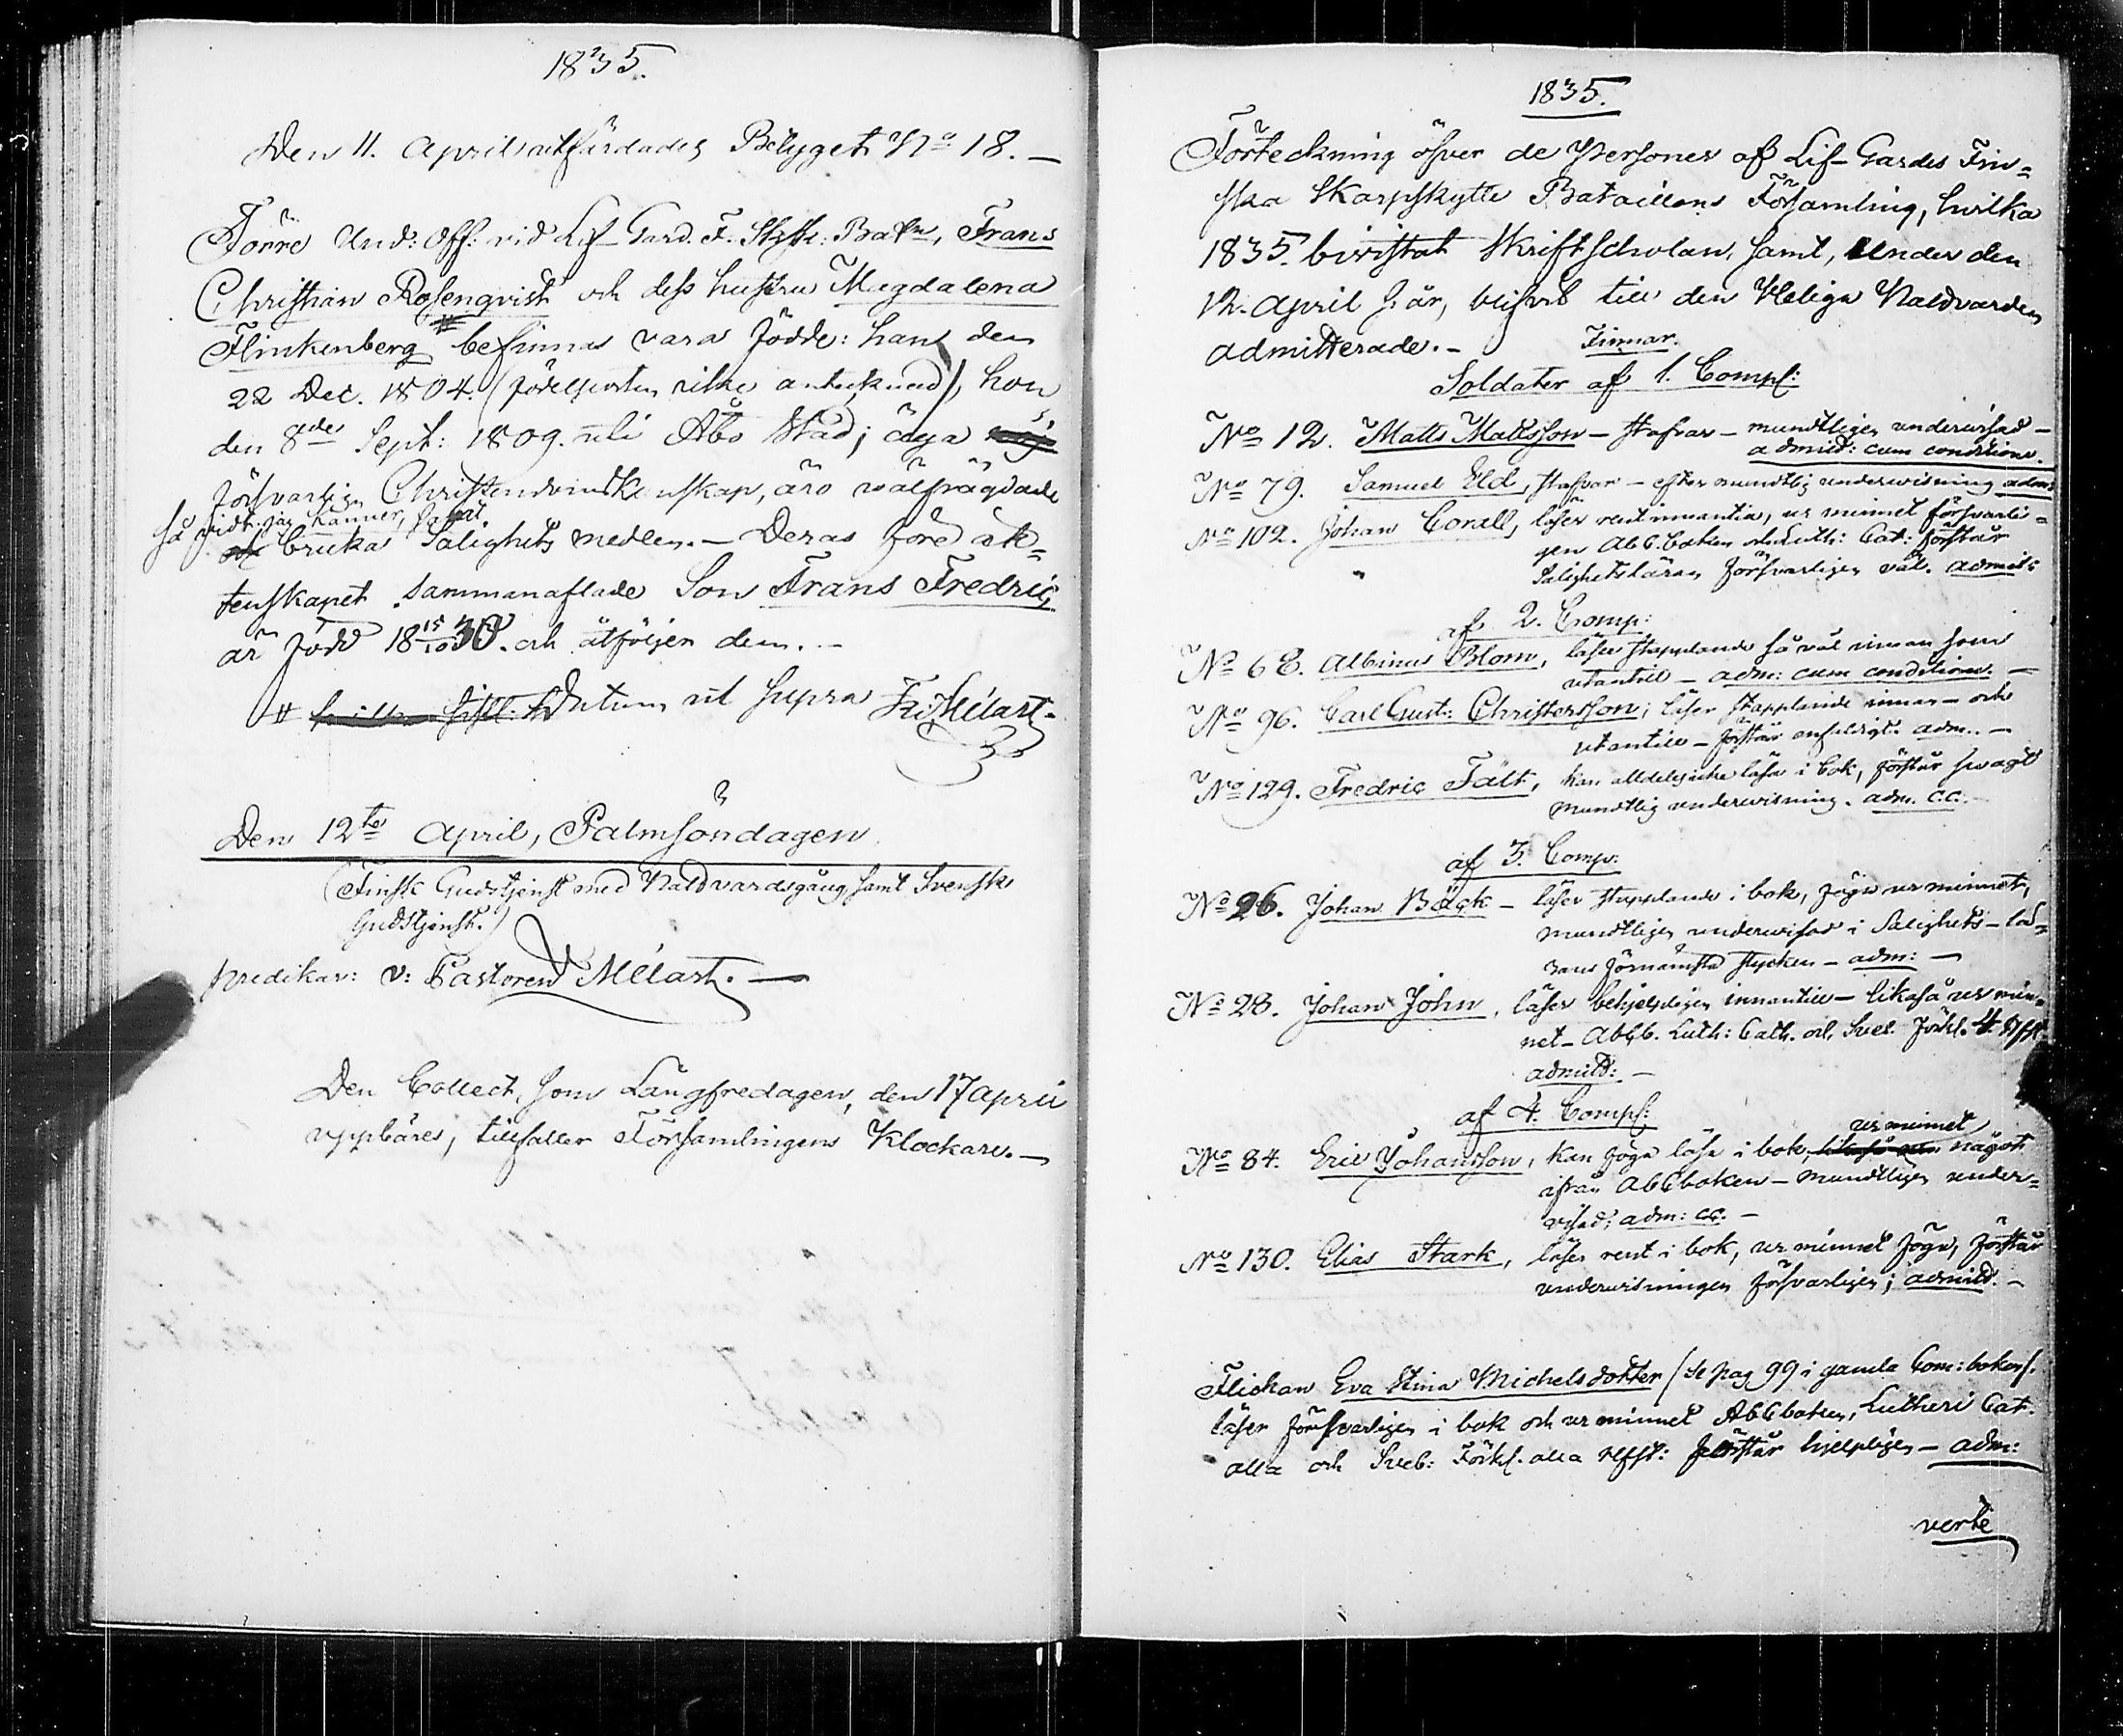 1835.
Den 11. April utfärdades Betyget No 18. –
Förre Und: Off: vid Lif-Gard. F. Skytt: Batn, Frans
Christian Rosenqvist och dess hustru Magdalena
Flinkenberg # befinnas vara födde: han den
22 Dec. 1804. (födelseorten icke antecknad), hon
den 8de Sept: 1809. uti Åbo Stad; äga
försvarlig Christendomskunskap, äro välfrägdade
så vidt jag känner, samt
bruka Salighets medlen. – Deras före äk=
tenskapet sammanaflade Son Frans Fredric,
är född 18 15/10 30. och åtföljer dem. –
# Datum ut supra Fr: Mélart.
Den 12te April, Palmsöndagen.
(Finsk Gudstjenst med Nattvardsgång samt Svensk
Gudstjenst.)
predikar: v: Pastoren Mélart. –
Den Collect, som Långfredagen, den 17 April
uppbäres, tillfaller Församlingens Klockare. –
1835.
Förteckning öfver de Personer af Lif-Gardes Fin=
ska Skarpskytte Bataillons Församling, hvilka
1835. bivistat Skriftscholan, samt, under den
12. April s. år, blifvit till den Heliga Nattvarden
admitterade. –
Finnar.
Soldater af 1. Comp:
No 12. Matts Mattsson – stafvar – mundtligen undervisad –
admitt: cum conditione.
No 79. Samuel Eld, stafvar – efter mundtlig undervisning adm:
No 102. Johan Corall, läser rent innantill, ur minnet försvarli=
gen AbC.boken och Luth: Cat: förstår
Salighetsläran försvarligen väl. admitt:
af 2. Comp:
No 68. Albinus Blom, läser stapplande så väl innan som
utantill – adm: cum conditione. –
No 96. Carl Gust: Christersson; läser stapplande innan- och
utantill – förstår enfaldigt. adm. –
No 129. Fredric Fält, kan alldeles icke läsa i bok, förstår svagt
mundtlig undervisning. adm. c.c. –
af 3. Comp:
No 26. Johan Bäck – läser stapplande i bok, föga ur minnet,
mundtligen undervisad i Salighets-lä=
rans förnämsta stycken – adm: –
No 28. Johan John, läser behjelpligen innantill – likaså ur min=
net – AbCb. Luth: Cath. och Sveb. Förkl. 4
admitt: –
af 4. Comp:
ur minnet
No 84. Eric Johansson, kan föga läsa i bok, likaså ur något
ifrån AbCboken – mundtligen under=
visad; adm: cc. –
No 130. Elias Stark, läser rent i bok, ur minnet föga, förstår
undervisningen försvarligen; admitt. –
Flickan Eva Stina Michelsdotter (se pag 99 i gamla Com: boken).
läser försvarligen i bok och ur minnet AbCboken, Lutheri Cat.
alla och Sveb: Förkl. alla förstår hjelpligen – adm:
verte